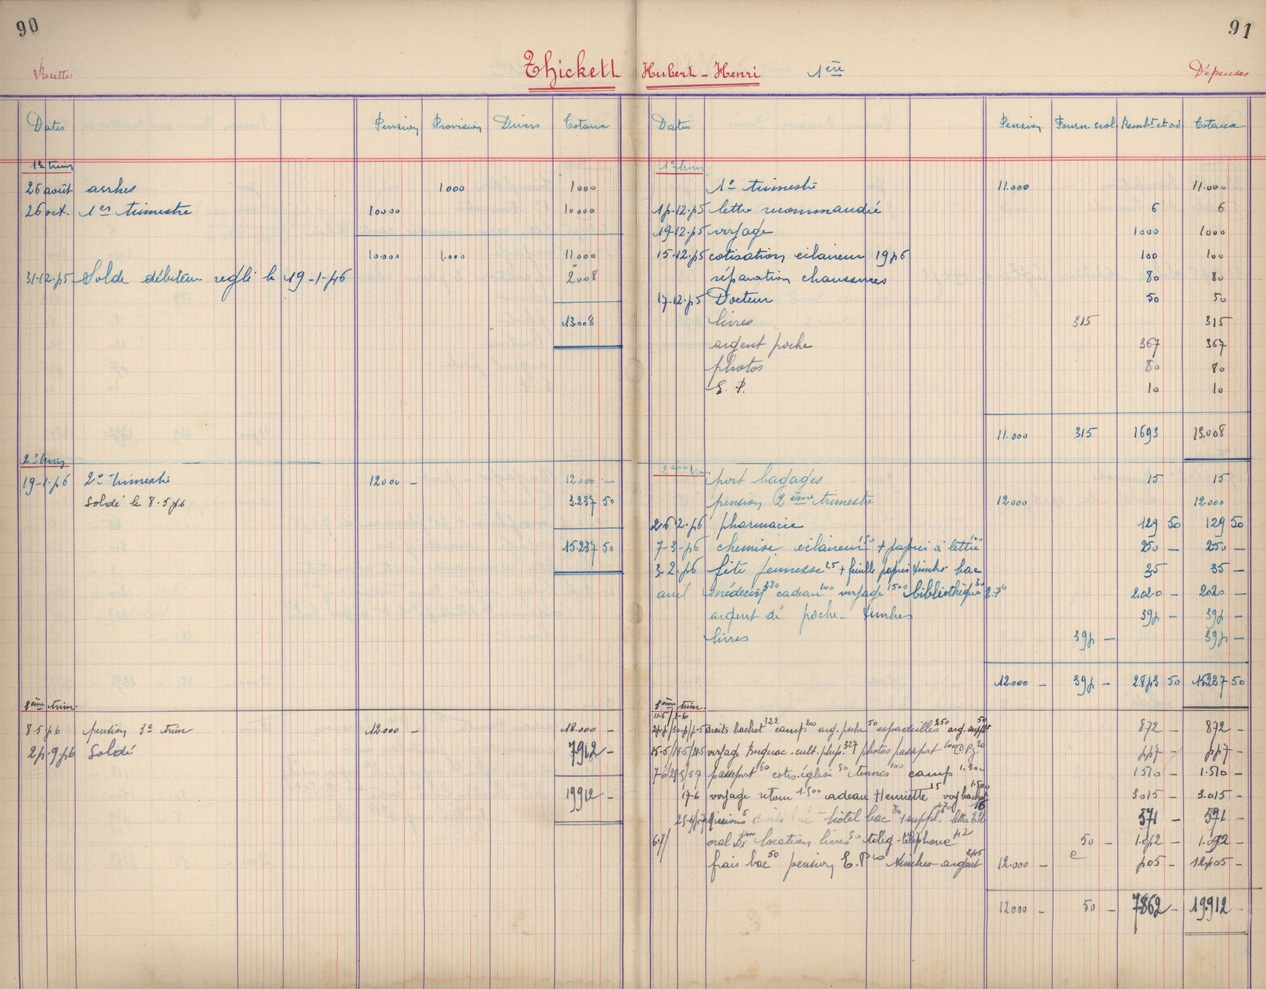 90
Recettes
Thickett
Dates Pension Provision Divers Totaux
1er trim
26 août arrhes 1000 1000
26 oct. 1er trimestre 10000 10000
10.000 1.000 11000
31-12-55 Solde débiteur réglé le 19-1-56 2008
13008
2e trim
19-1-56 2e trimestre 12000 - 12000 -
Soldé le 8.5.56 3.237 50
15237 50
3ème trim
8-5-56 pension 3e trim 12.000 - 12.000 -
25-9-56 Soldé 7912 -
19912 -
91
Hubert - Henri 1ère Dépenses
Dates Pension Fourn. scol Totaux
1er trim
1er trimestre 11.000 11.000
15-12-55 lettre recommandée 6 6
19-12-55 voyage 1000 1000
15-12-55 cotisations éclaireur 1956 100 100
réparation chaussures 80 80
17-12-55 Docteur 50 50
livres 315 315
argent poche 367 367
photos 80 80
10 10
11.000 315 1693 13.008
2ème trim
port bagages 15 15
pension 2ème trimestre 12.000 12000
26-2-56 pharmacie 129 50 129 50
7-3-56 chemise éclaireur 150 + papier à lettre 100 250 - 250 -
3-2-56 fête jeunesse 25 + feuille papier timbre bac 35 - 35 -
avril médecin cadeau voyage 1500 bibliothèque 2.020 - 2020 -
argent de poche - timbres 395 - 395 -
livres 395 - 395 -
12.000 - 395 - 2842 50 15237 50
3ème trim.
droits bachot 322 camp 200 arg. poche 50 espadrilles 250 872 - 872 -
photos passeport 557 - 557 -
passeport 60 cotis. église 50 tennis 100 camp 1.510 - 1.510 -
17-6 voyage retour 1.500 cadeau Henriette 3.015 - 3.015 -
hôtel bac 571 - 571 -
oral location livres 50 télég-téléphone 50 - 1.092 -
frais bac 50 pension timbres-argent 12.000 -
12000 - 50 - 7862 - 19912 -